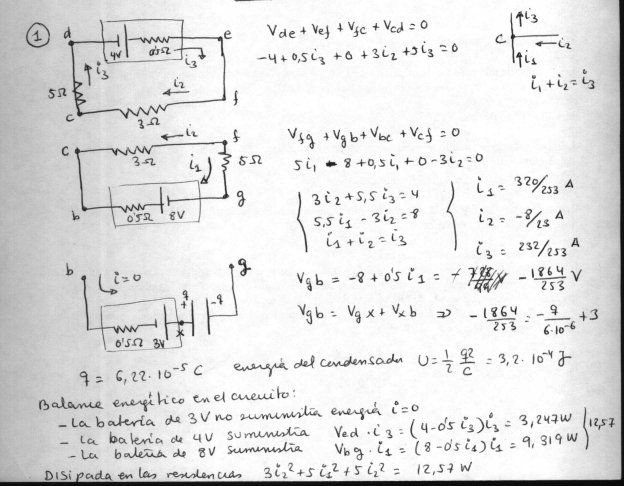 1
d
e
4V
0'5Ω
i3
i3
5Ω
i2
c
3Ω
f
Vde + Vef + Vfc + Vcd = 0
-4 + 0,5i3 + 0 + 3i2 + 5i3 = 0
i3
c
i2
i1
i1 + i2 = i3
i2
c
f
3Ω
i1
5Ω
b
g
0'5Ω 8V
Vfg + Vgb + Vbc + Vcf = 0
5i1 - 8 + 0,5i1 + 0 - 3i2 = 0
3i2 + 5,5i3 = 4
5,5i1 - 3i2 = 8
i1 + i2 = i3
i1 = 320/253 A
i2 = -8/23 A
i3 = 232/253 A
b
i=0
g
q
+
-q
x
0'5Ω 3V
Vgb = -8 + 0'5 i1 = -1864/253 V
Vgb = Vgx + Vxb ⇒ -1864/253 = -q/6·10⁻⁶ + 3
q = 6,22·10⁻⁵ C energía del condensador U = 1/2 q²/C = 3,2·10⁻⁴ J
Balance energético en el circuito:
- La batería de 3V no suministra energía i=0
- La batería de 4V suministra Ved·i3 = (4-0'5i3)i3 = 3,247W
- La batería de 8V suministra Vbg·i1 = (8-0'5i1)i1 = 9,319W
12,57
Disipada en las resistencias 3i2² + 5i1² + 5i2² = 12,57 W